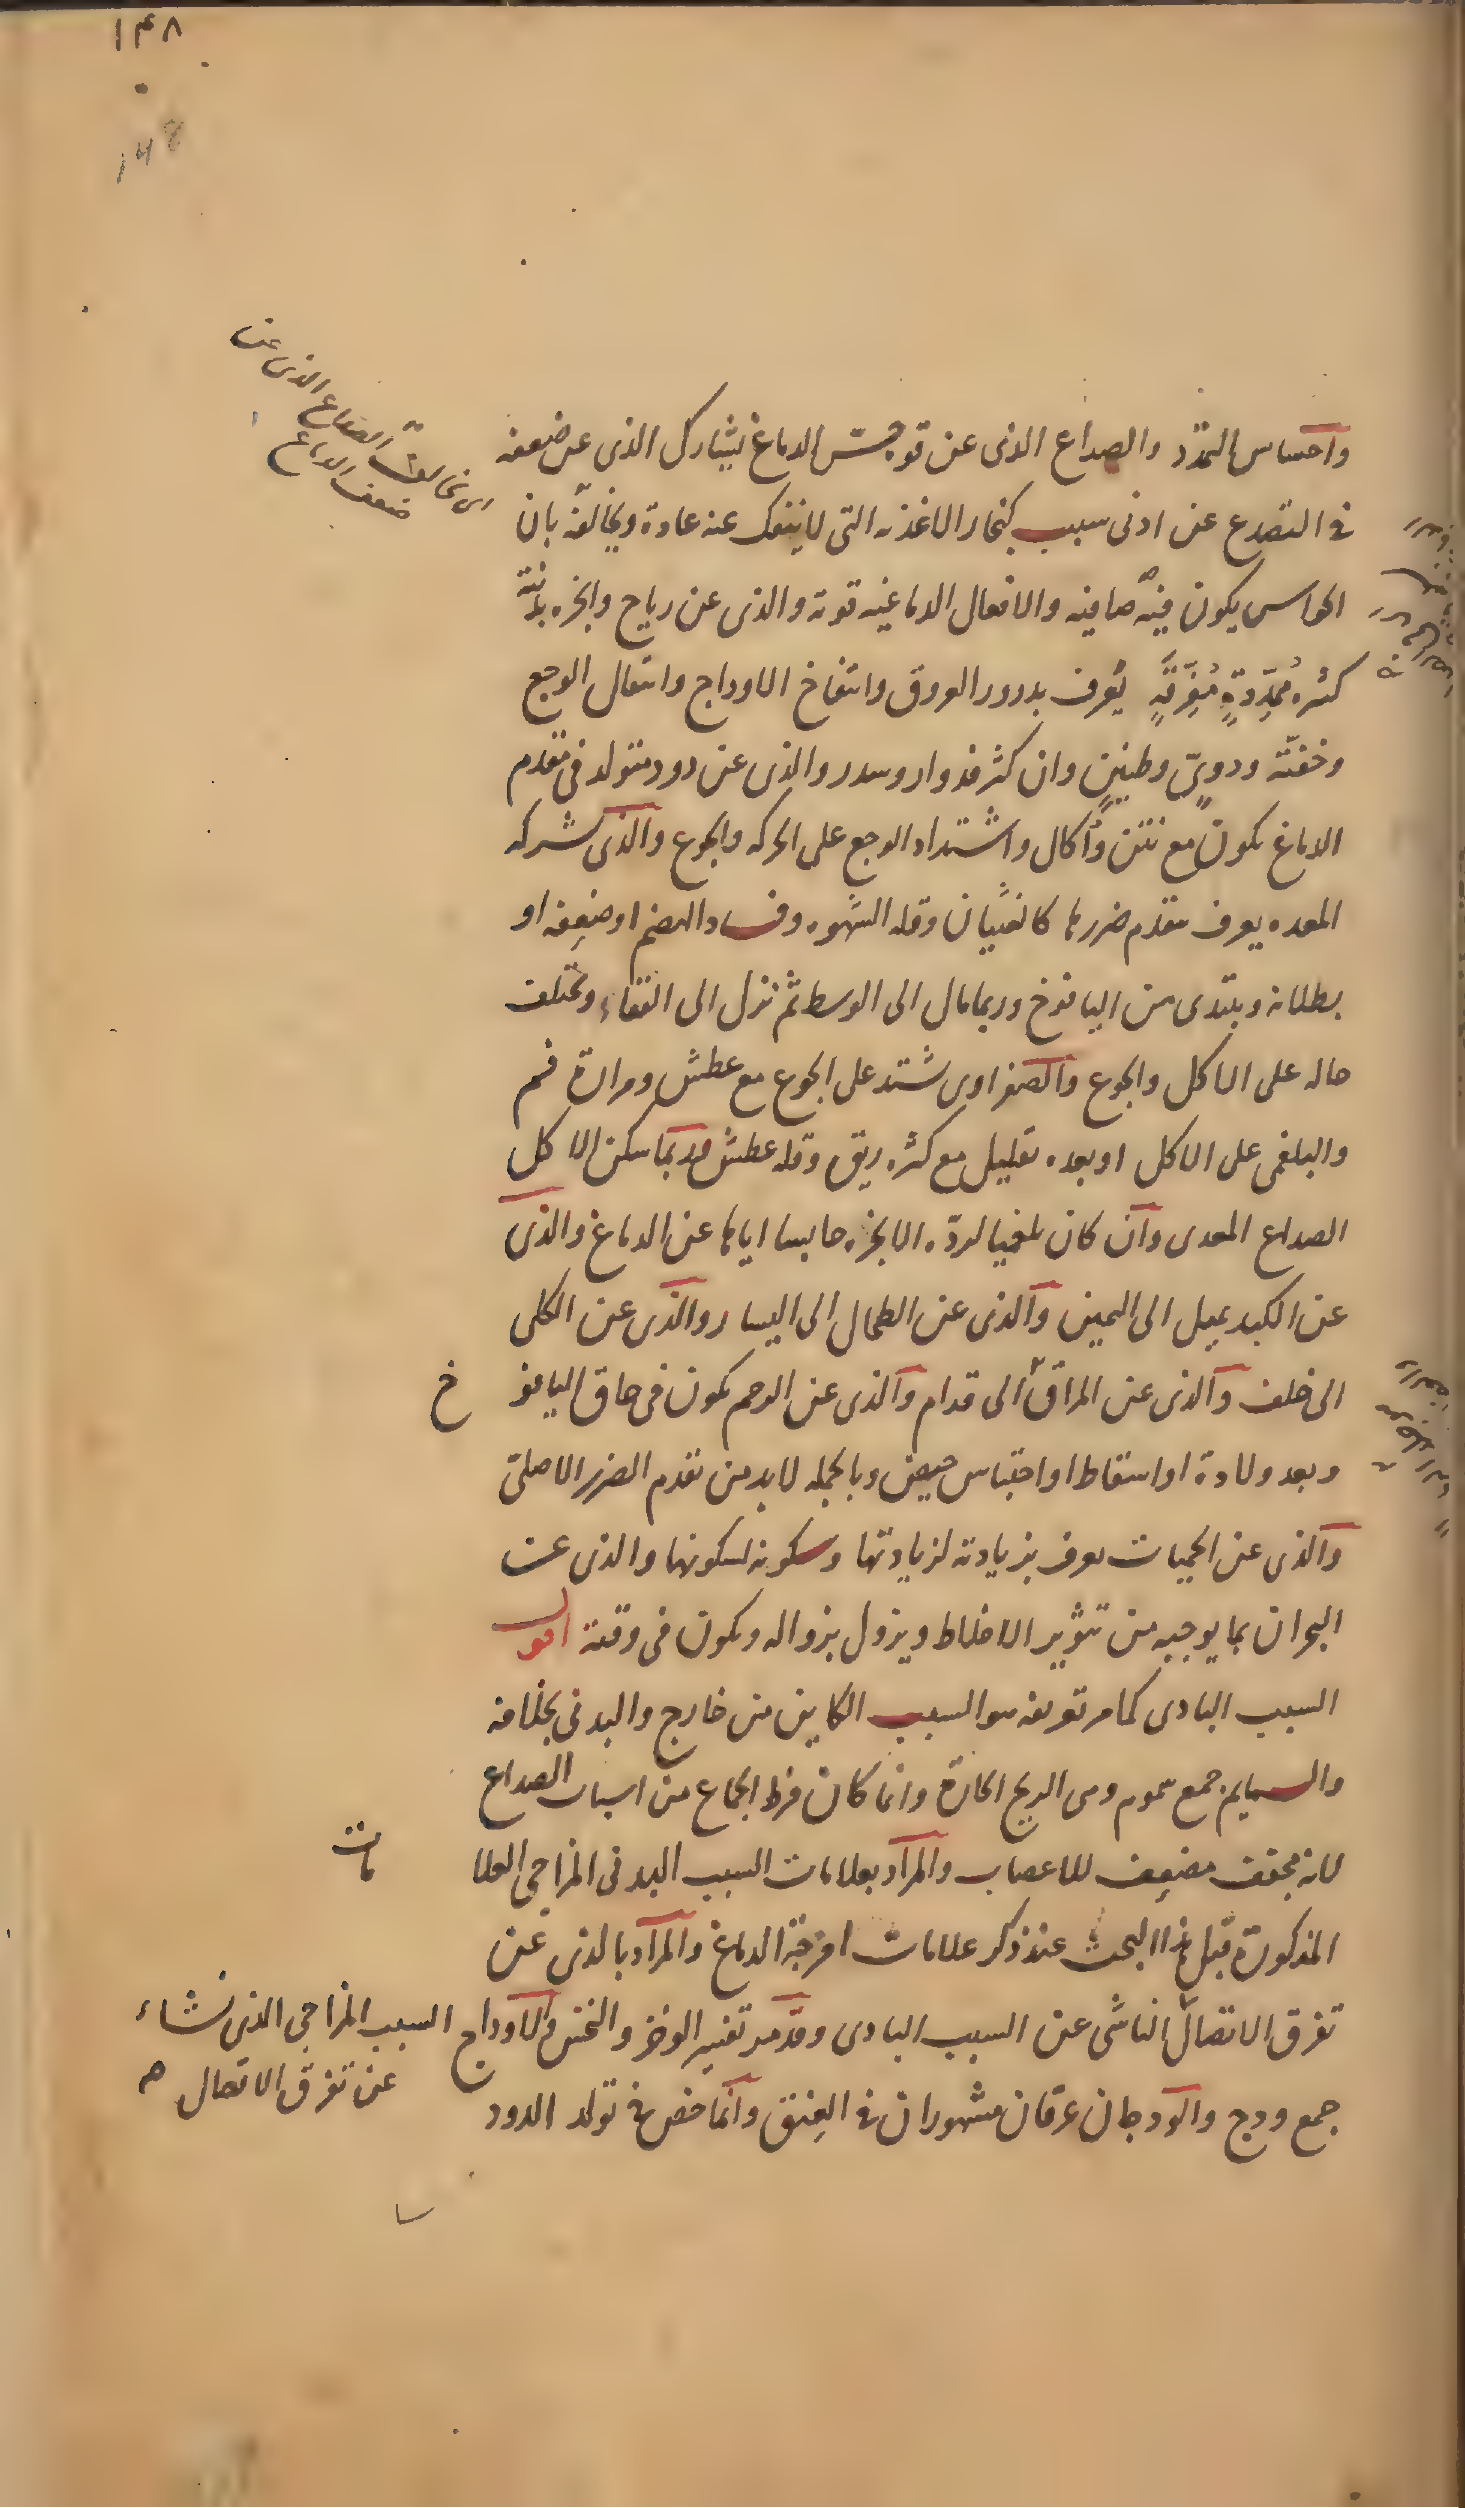 ١٤٨
148
واحساس التمدد والصداع الذى عن قوة حسّ الدماغ يشارك الذى عن ضعفه
فى التصدع عن ادنى سبب كبخار الاغذيه التى لا ينفك عنه عادة ويخالفه بان
الحواس يكون فيه صافيه والافعال الدماغيه قوية والذى عن رياح وابخره بدنية
كثيره مُمدِّدةٍ مُفرِّقَةٍ يُعرف بدرور العروق وانتفاخ الاوداج وانتقال الوجع
وخفّته ودوىّ وطنينٍ وان كثر فدوار وسدر والذى عن دود متولد فى مقدم
الدماغ يكون مع نتن وأُكال واشتداد الوجع على الحركه والجوع والذى بشركه
المعده يعرف بتقدم ضررها كالغثيان وقله الشهوه وفساد الهضم او ضعفه او
بطلانه ويبتدى من اليافوخ وربما مال الى الوسط ثم نزل الى القفاء ويختلف
حاله على الاكل والجوع والصفراوى يشتد على الجوع مع عطش ومرارة فم
والبلغمى على الاكل او بعده بقليل مع كثره ريق وقله عطش وربما سكن الاكل
الصداع المعدى وان كان بلغميا لردّه الابخره حابسا اياها عن الدماغ والذى
عن الكبد يميل الى اليمين والذى عن الطحال الى اليسار والذى عن الكلى
الى خلف والذى عن المراقّ الى قدام والذى عن الرحم يكون فى حاق اليافو خ
وبعد ولادة او اسقاط او احتباس حيض وبالجمله لا بد من تقدم الضرر الاصلىّ
والذى عن الحميات يعرف بزيادته لزيادتها وسكونه لسكونها والذى عن
البحران بما يوجبه من تثوير الاخلاط ويزول بزواله ويكون فى وقته اقول
السبب البادى كما مر تعريفه هو السبب الكاين من خارج والبدنى بخلافه
والسمايم جمع سموم وهى الريح الحارة وانما كان فرط الجماع من اسباب الصداع
لانه مجفف مضعِف للاعصاب والمراد بعلامات السبب البدنى المزاجى العلا مات
المذكورة قبل هذا البحث عند ذكر علامات امزجة الدماغ والمراد بالذى عن
تفرق الاتصال الناشى عن السبب البادى وقد مر تفسير الوخز والنخس والاوداج
جمع ودج والودجان عرقان مشهوران فى العنق وانما خص فى تولد الدود
اى يخالف الصداع الذى عن
ضعف الدماغ
السبب المزاجى الذى نشاء
عن تفرق الاتصال